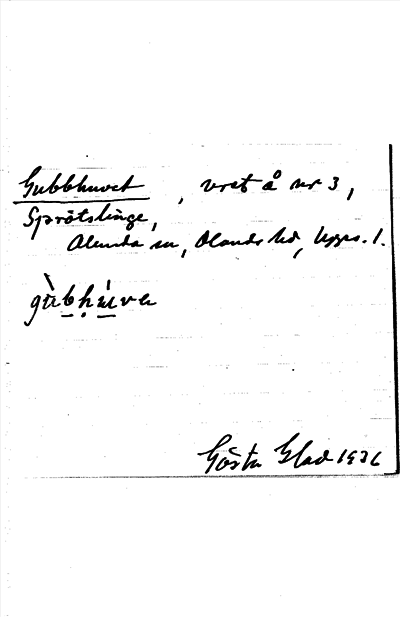 Gubbhuvet, vret å nr 3,
Sprötslinge,
Alunda sn, Olands hd, Upps. l.
gùbḥúve
Gösta Glad 1936